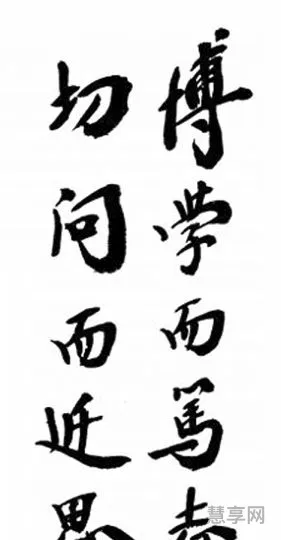 博学而笃志
切问而近思
慧享网